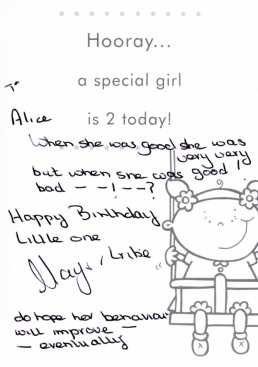 Hooray...
a special girl
To
Alice
is 2 today!
When she was good she was
very very
good!
but when she was
bad - - ! - - ?
Happy Birthday
Little one
do hope her behaviour
will improve -
- eventually